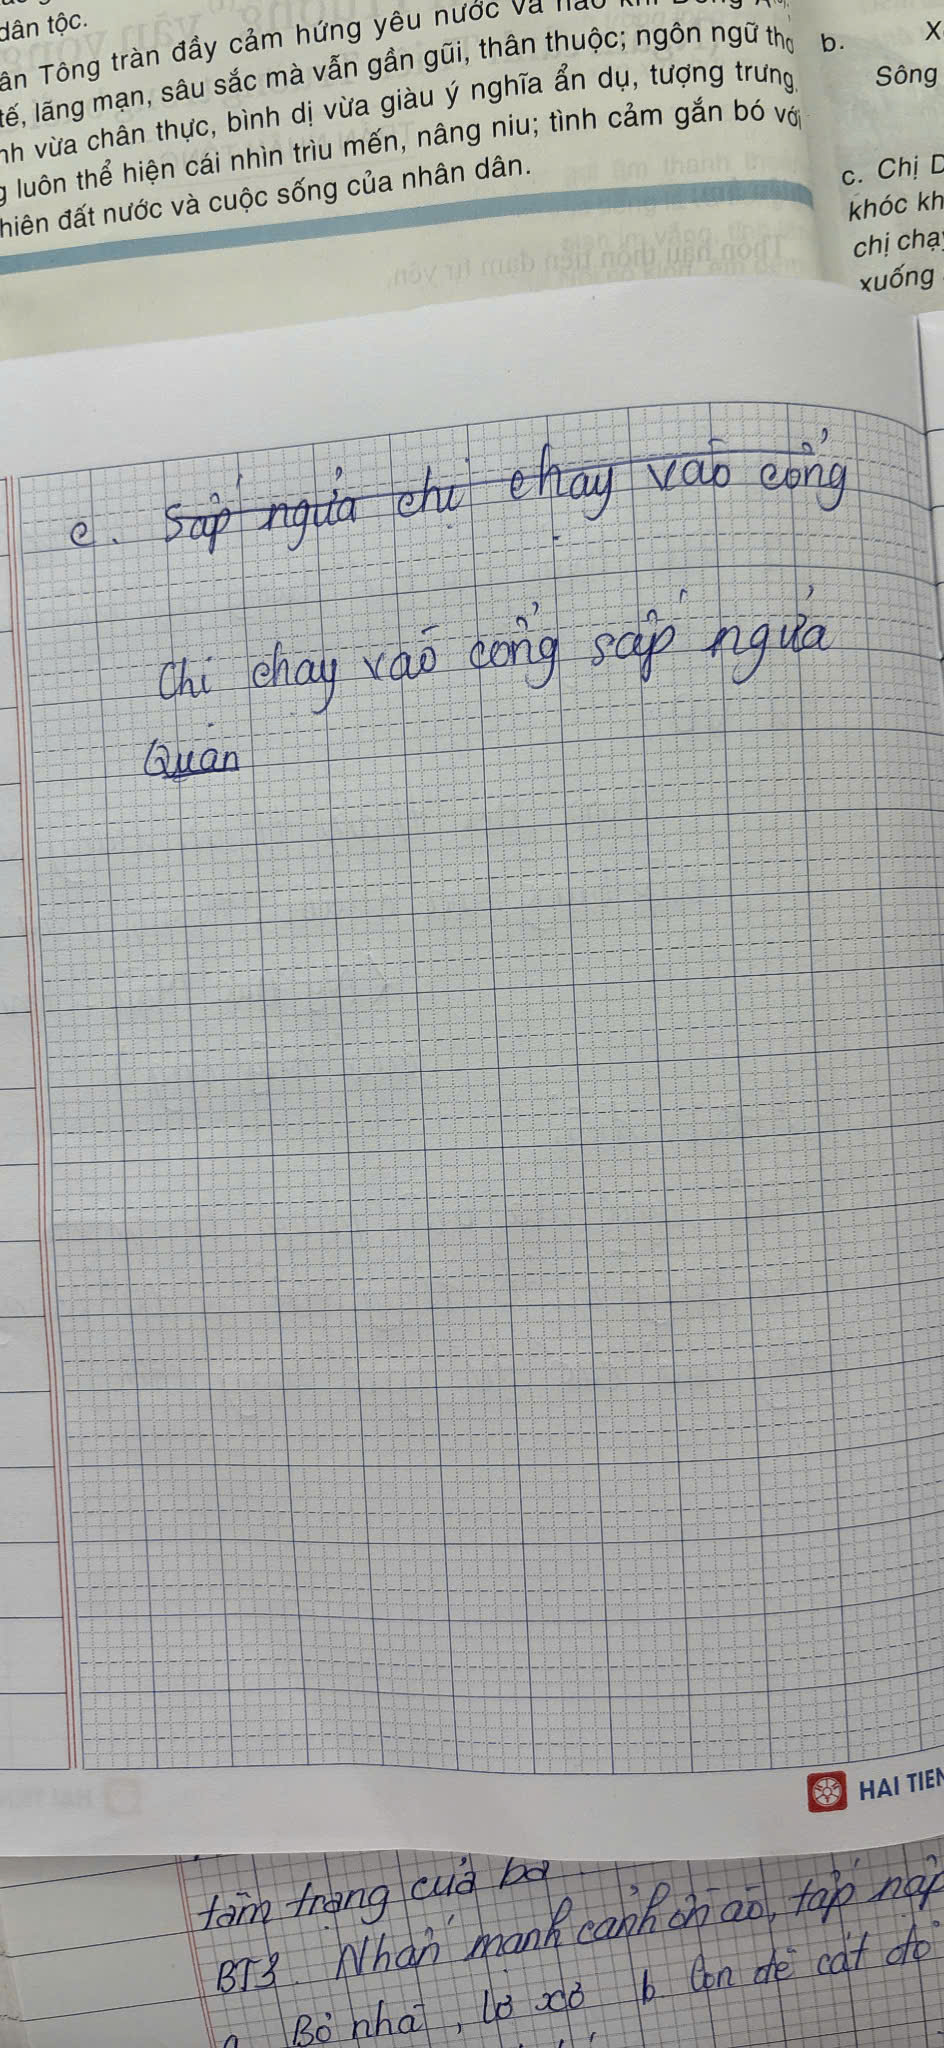 dân tộc.
ân Tông tràn đầy cảm hứng yêu nước và
tế, lãng mạn, sâu sắc mà vẫn gần gũi, thân thuộc; ngôn ngữ thơ
nh vừa chân thực, bình dị vừa giàu ý nghĩa ẩn dụ, tượng trưng.
g luôn thể hiện cái nhìn trìu mến, nâng niu; tình cảm gắn bó với
hiên đất nước và cuộc sống của nhân dân.
b. X
Sông
c. Chị D
khóc kh
chị chạy
xuống
e. Sấp ngửa chị chạy vào cổng
Chị chạy vào cổng sấp ngửa
Quán
tâm trạng của bà
BT3. Nhấn mạnh cảnh ồn ào, tấp nập
a Bỏ nhà, lơ xơ b Con đê cát đỏ
HAI TIEN